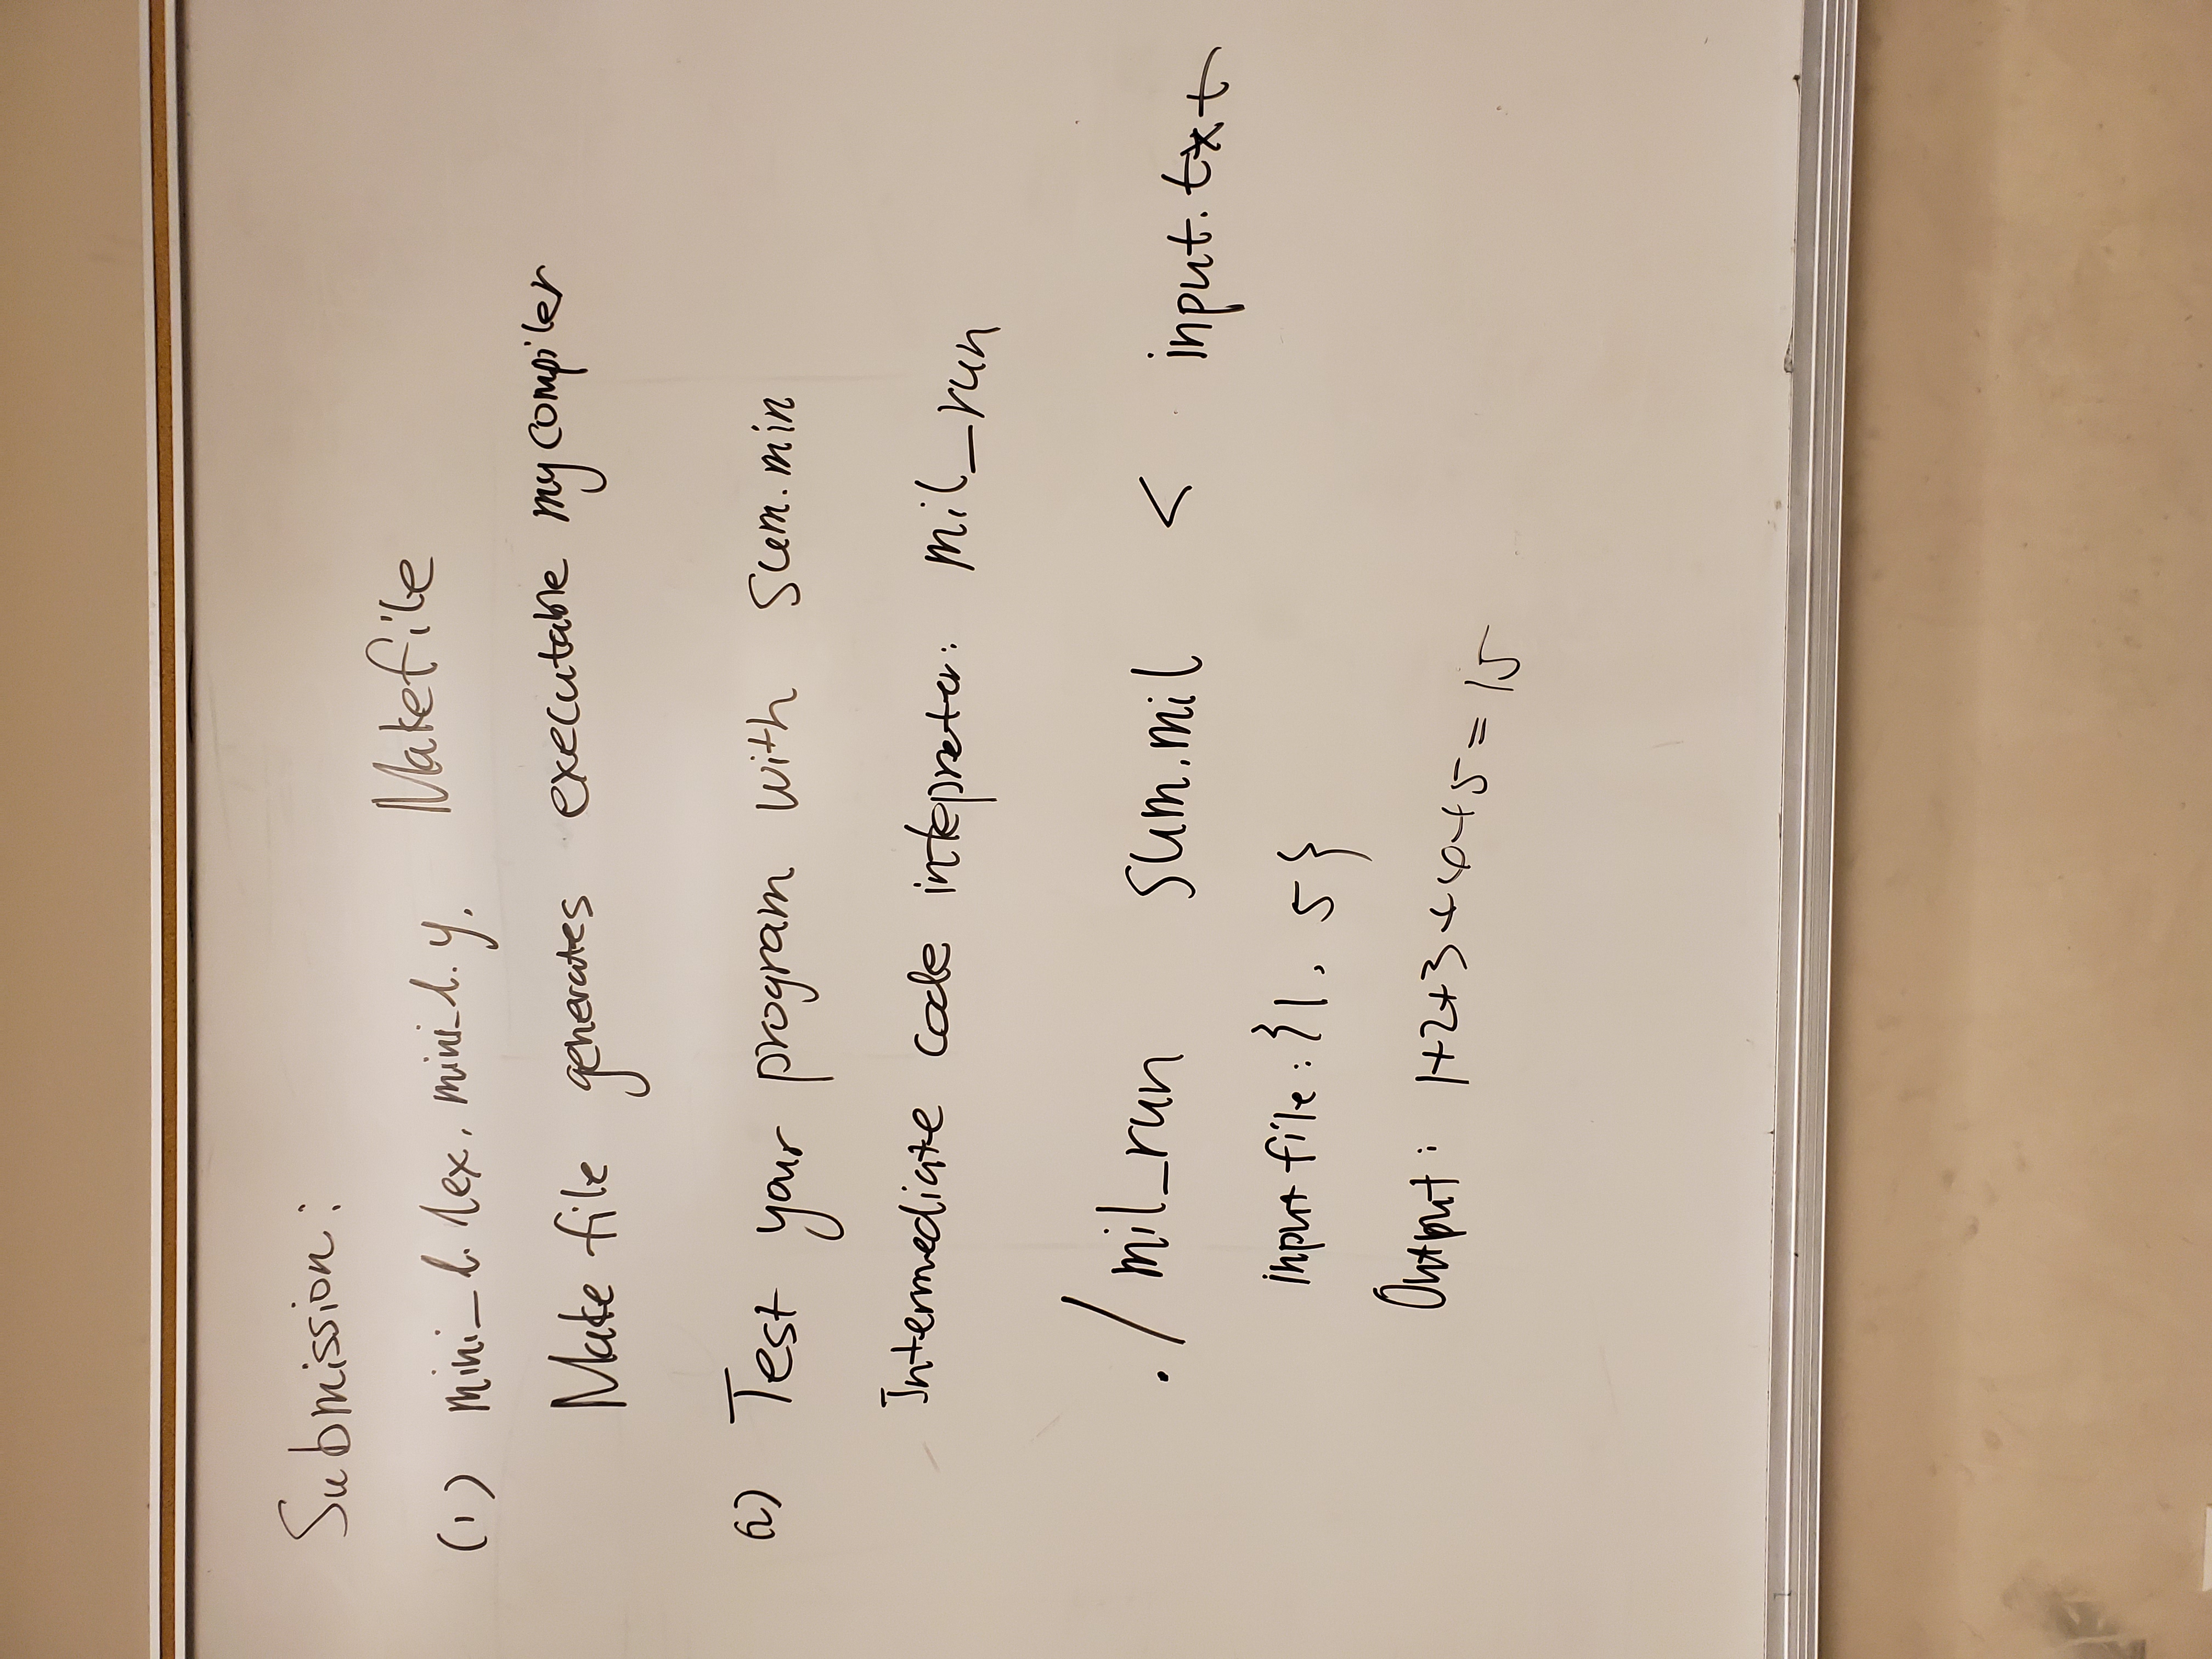 Submission:
(1) mini_l.lex, mini_l.y, Makefile
Make file generates executable mycompiler
(2) Test your program with sum.min
Intermediate code intepreter: mil_run
./mil_run sum.mil < input.txt
input file: {1, 5}
Output: 1+2+3+4+5=15